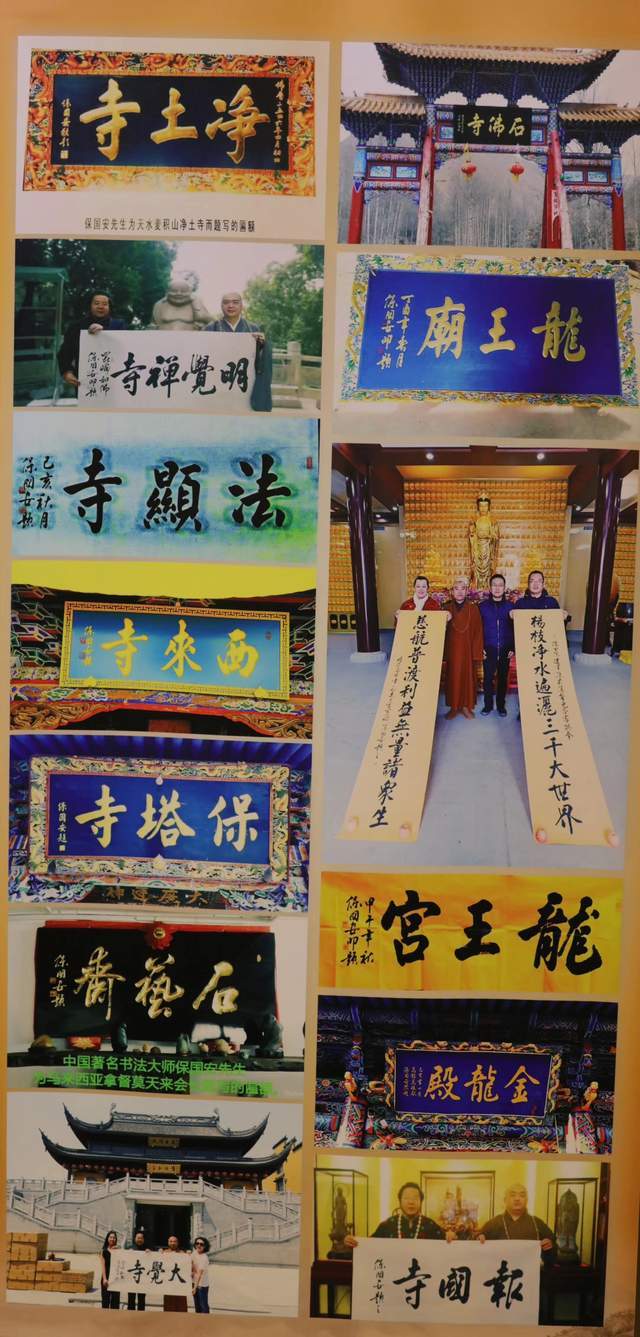 净土寺
保国安题
保国安先生为天水麦积山净土寺而题写的匾额
明覺禅寺
保國安叩題
法顯寺
己亥秋月
保國安題
西來寺
保塔寺
保国安題
石藝齋
保國安題
中国著名书法大师保国安先生
大覺寺
石佛寺
龍王廟
丁酉年春月
保國安叩題
楊枝净水遍灑三千大世界
慈航普渡利益無量諸衆生
龍王宫
甲午年秋
保國安叩題
金龍殿
報國寺
保國安叩題